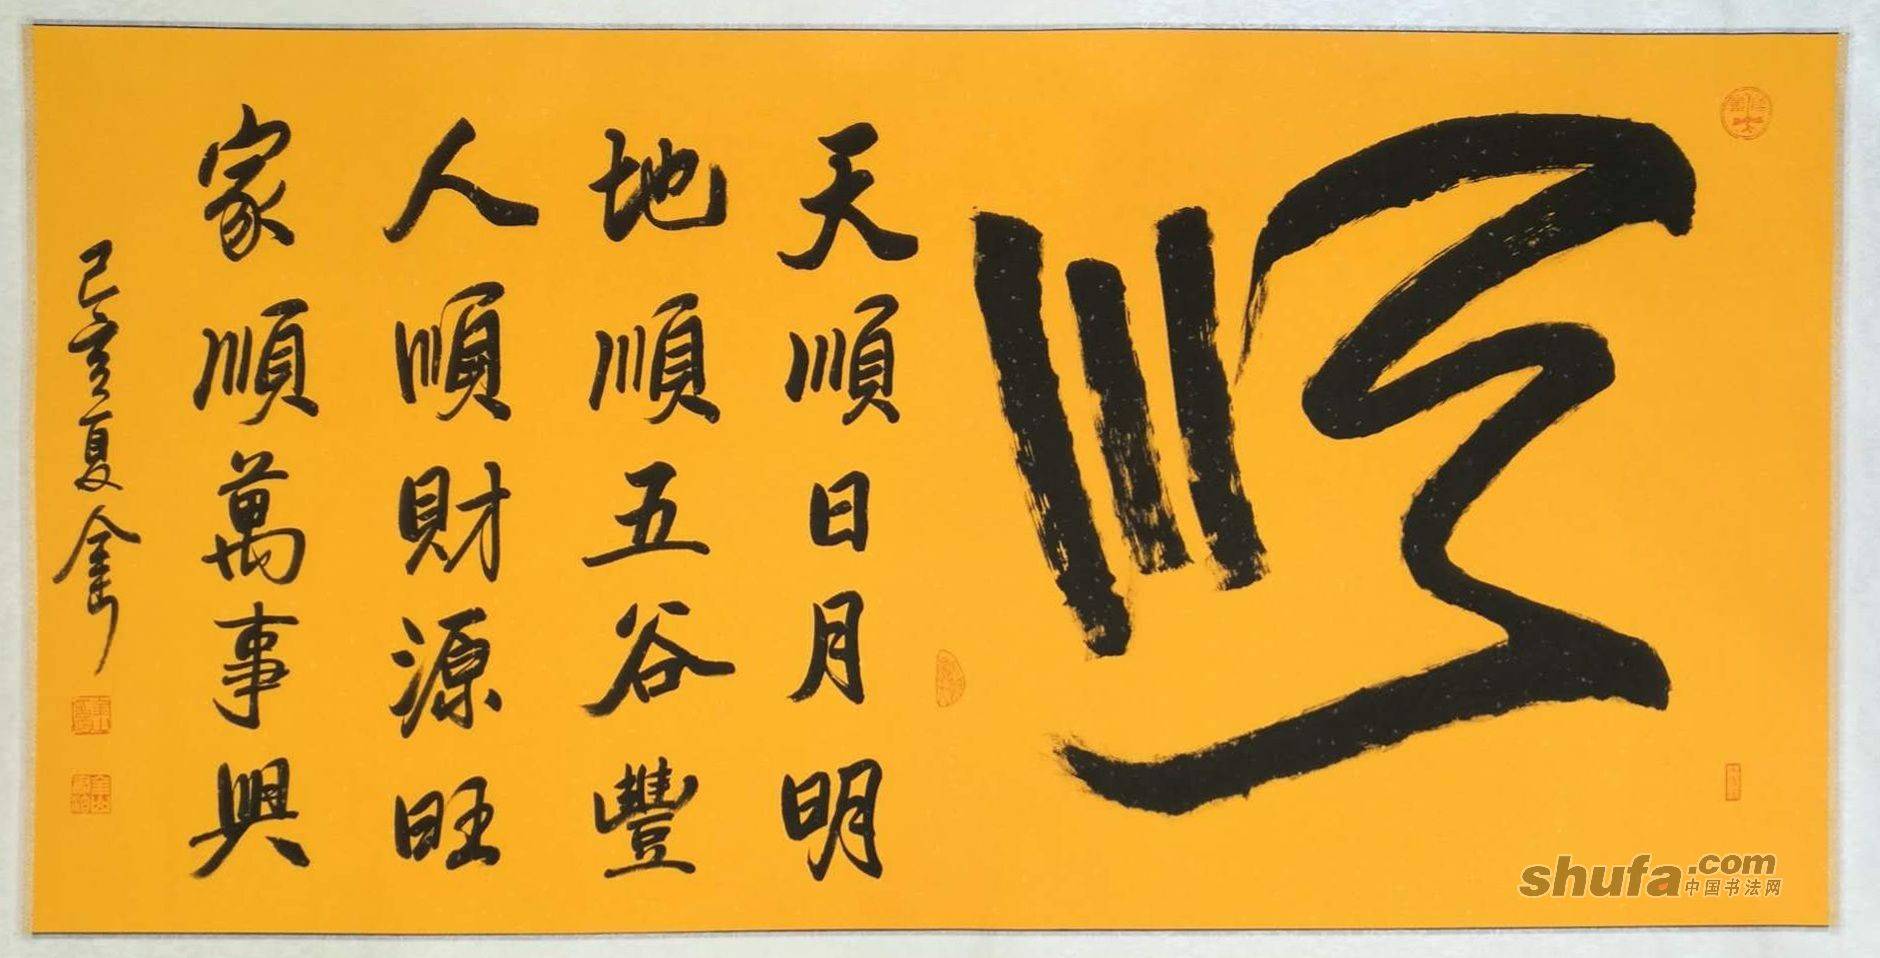 順
天順日月明
地順五谷豐
人順財源旺
家順萬事興
己亥夏
shufa.com
中国书法网